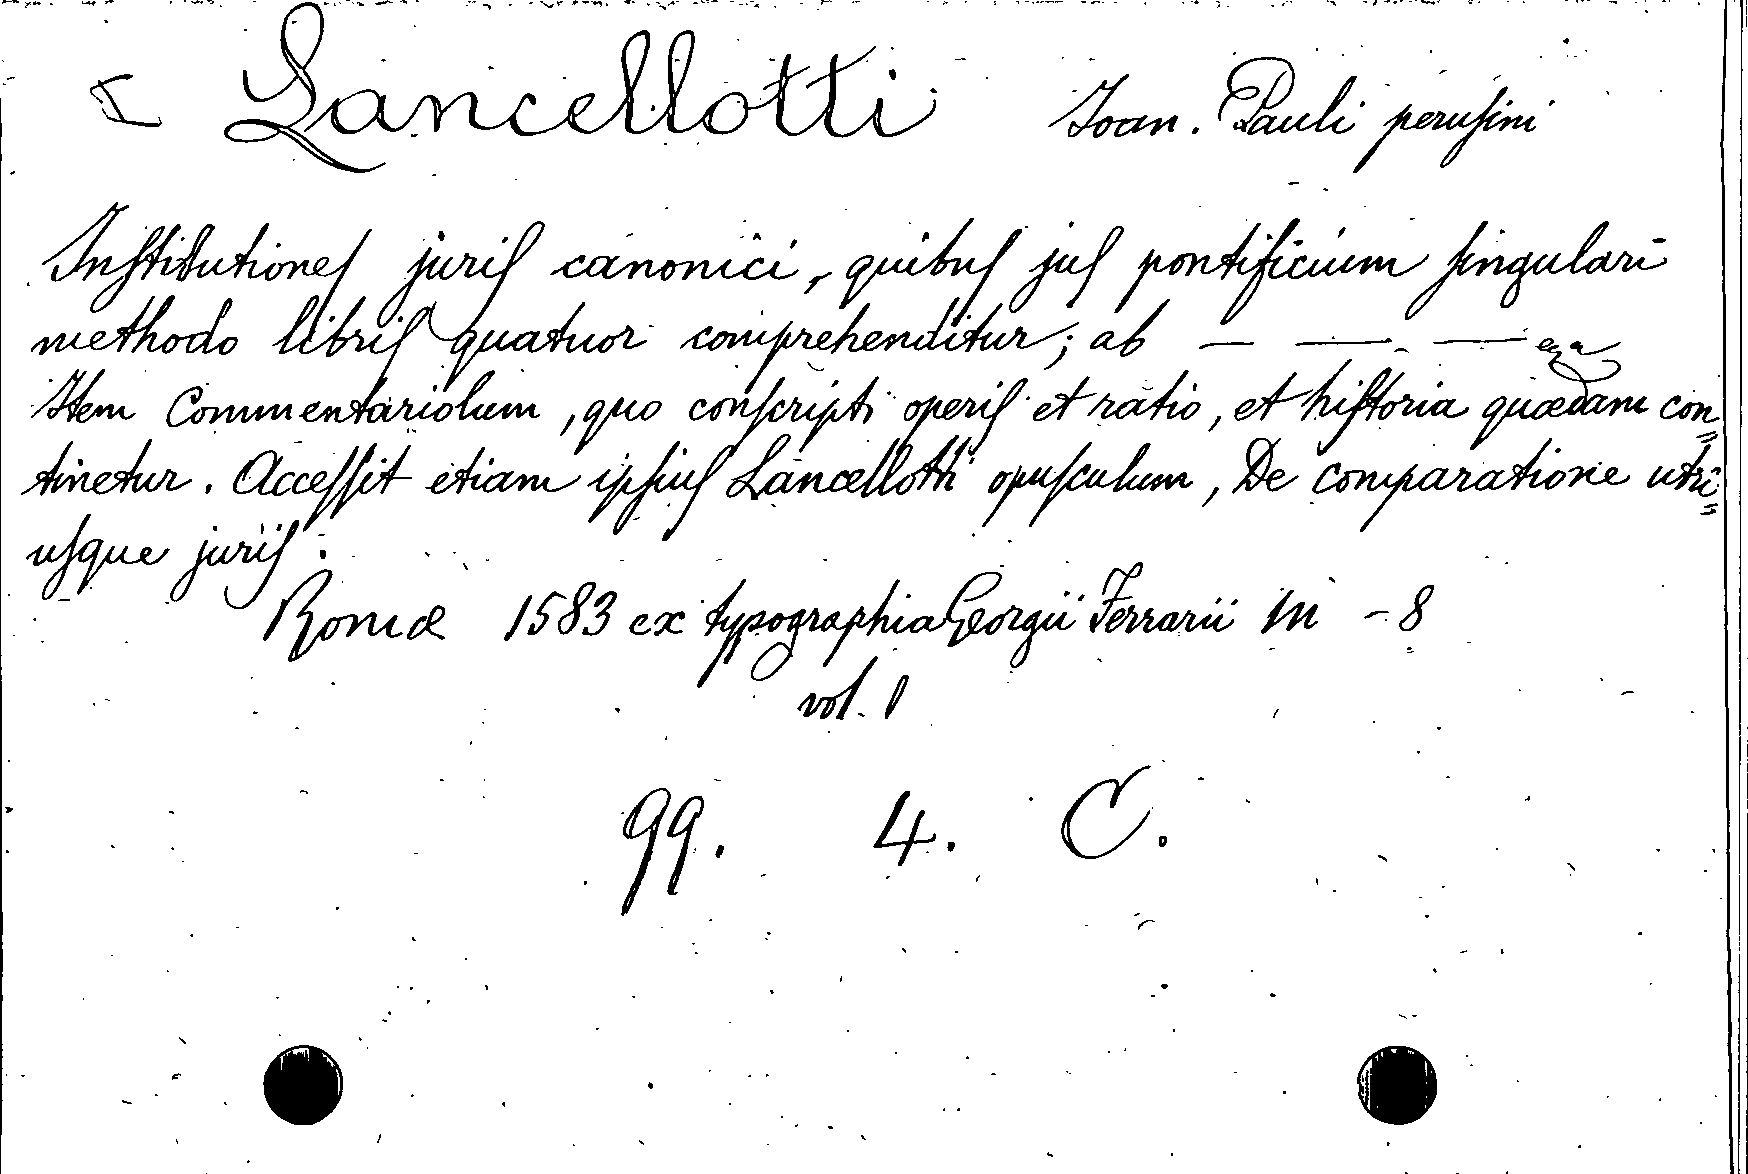 Lancellotti Joan. Pauli peruſini
Inſtitutioneſ juriſ canonici, quibuſ juſ pontificium ſingulari
methodo libriſ quatuor comprehenditur; ab — — . —
Item Commentariolum, quo conſcripti operiſ et ratio, et hiſtoria quædam con„
tinetur. Acceſſit etiam ipſiuſ Lancellotti opuſculum, De comparatione utri„
uſque juriſ.
Romæ 1583 ex typographia Georgii Ferrarii in - 8
vol. 1
99. 4. C.